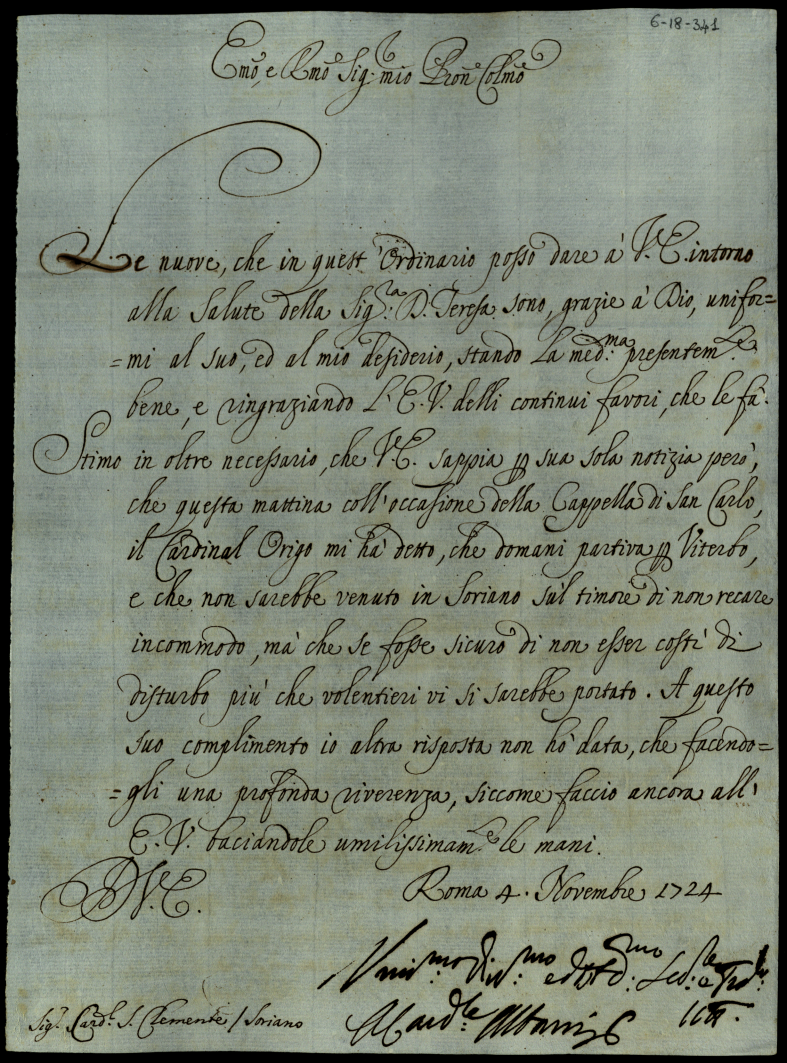 6-18-341
Emo, e Rmo Sig. mio Pron Colmo
Le nuove, che in quest'Ordinario posso dare à V.E. intorno
alla Salute della Sig.ra D. Teresa sono, grazie à Dio, unifor=
=mi al suo, ed al mio desiderio, stando La med.ma presentem.te
bene, e ringraziando L'E.V. delli continui favori, che le fà.
Stimo in oltre necessario, che V.E. sappia per sua sola notizia però,
che questa mattina coll'occasione della Cappella di San Carlo,
il Cardinal Origo mi hà detto, che domani partiva per Viterbo,
e che non sarebbe venuto in Soriano sul timore di non recare
incommodo, mà che se fosse sicuro di non esser costì di
disturbo più che volentieri vi si sarebbe portato. A questo
suo complimento io altra risposta non hò data, che facendo=
=gli una profonda riverenza, siccome faccio ancora all'
E.V. baciandole umilissimam.te le mani.
D.V.E.
Roma 4. Novembre 1724
Sig.r Card.l S. Clemente / Soriano
A Card.le Albani